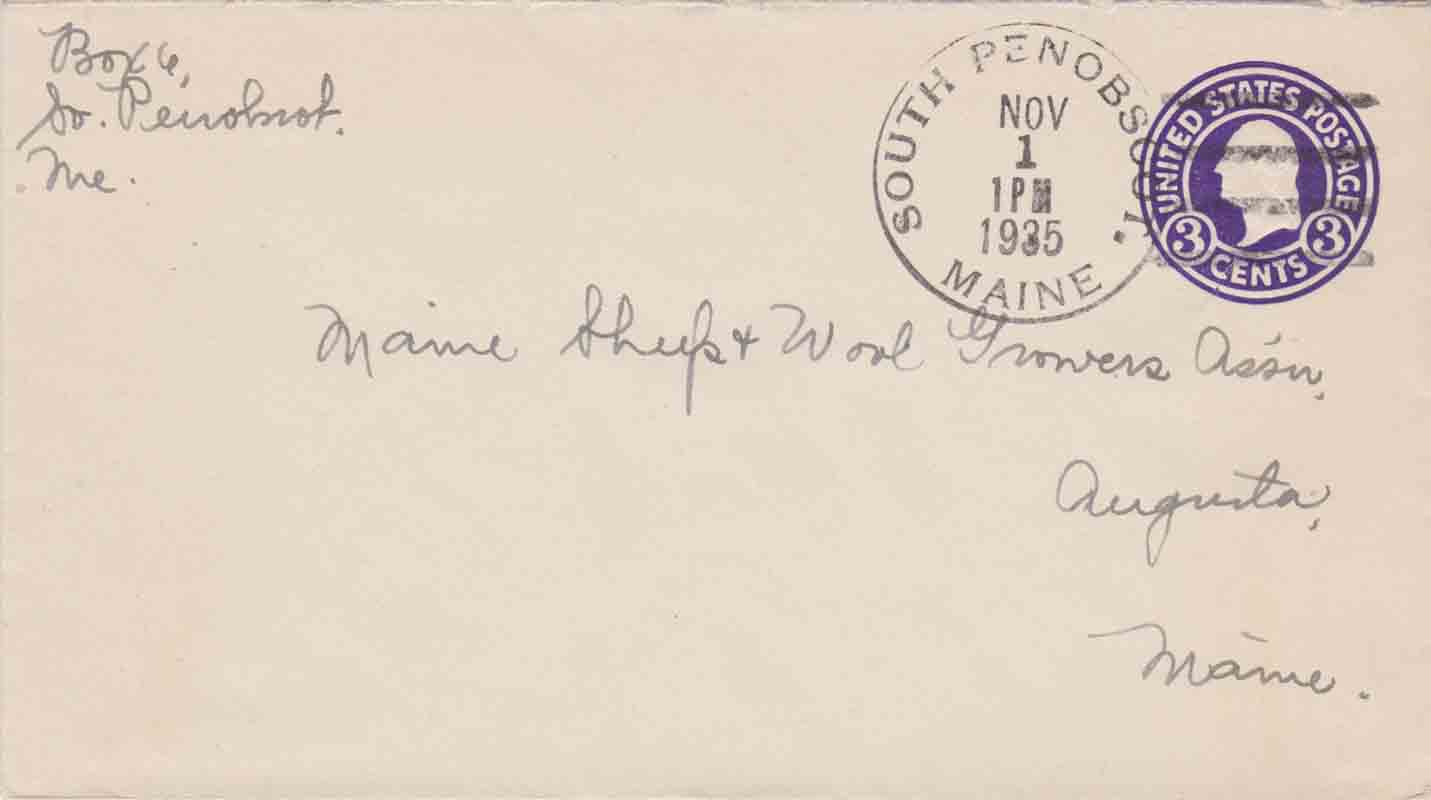 Box 6,
So. Penobscot.
Me.
SOUTH PENOBSCOT.
NOV
1
1 PM
1935
MAINE
UNITED STATES POSTAGE
3 CENTS 3
Maine Sheep & Wool Growers Ass'n,
Augusta,
Maine.